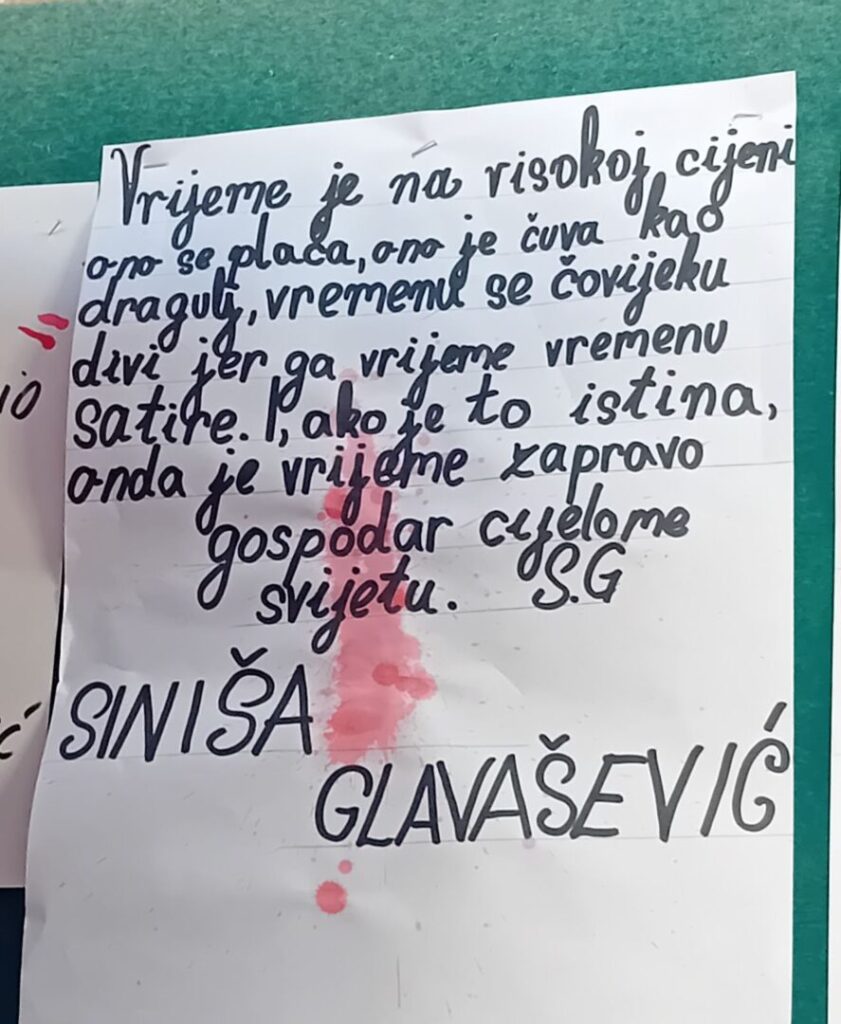 Vrijeme je na risokoj cijeni
ono se plaća, ono je čuva kao
dragulj, vremenu se čovijeku
divi jer ga vrijeme vremenu
satire. I, ako je to istina,
onda je vrijeme zapravo
gospodar cijelome
svijetu. S.G
SINIŠA
GLAVAŠEVIĆ